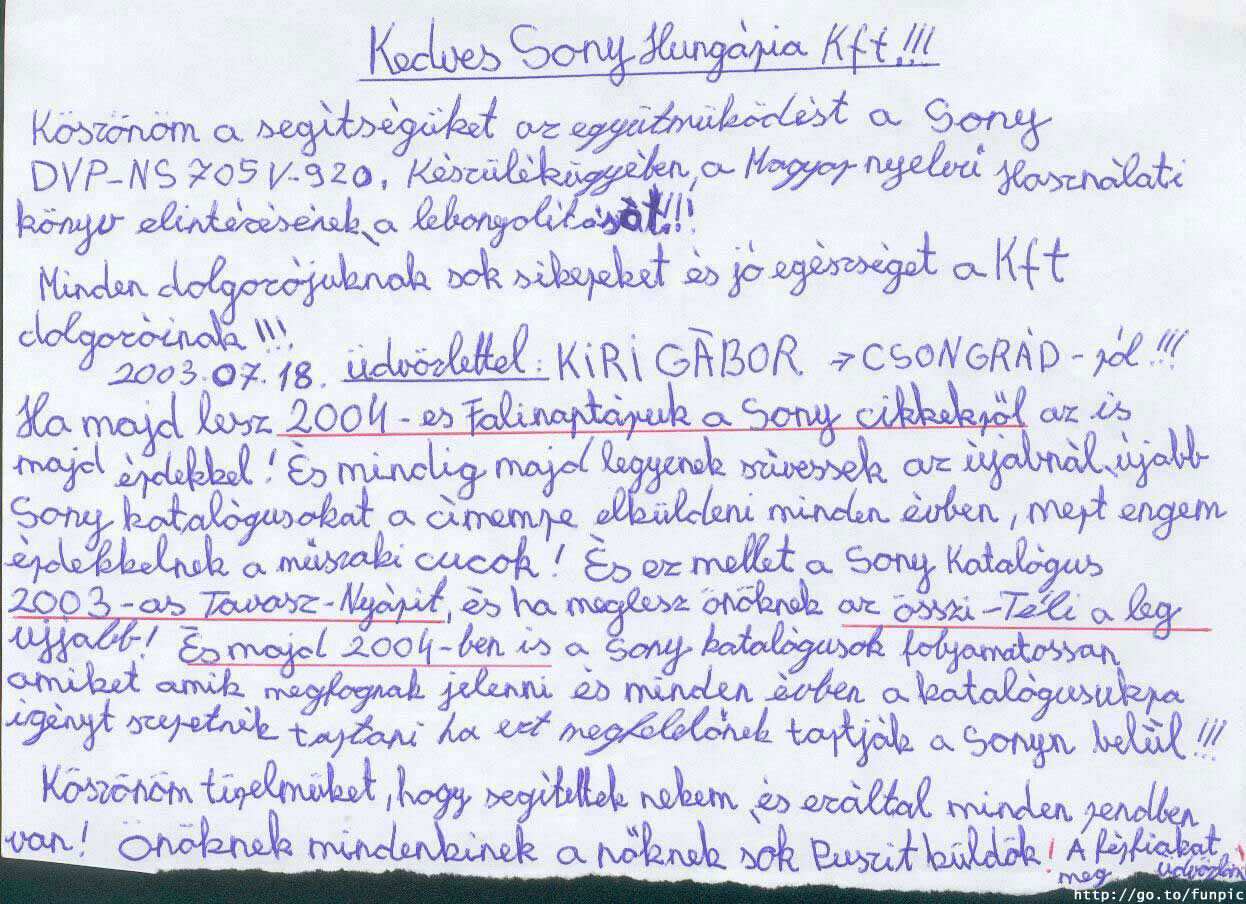 Kedves Sony Hungária Kft.!!!
Köszönöm a segítségüket az együtmüködést a Sony
DVP-NS 705 V-920. Készülékügyében, a Magyar nyelvi Használati
könyv elintézésének, a lebongolítását!!!
Minden dolgozójuknak sok sikereket és jó egészséget a Kft
dolgozóinak!!!
2003.07.18. üdvözlettel: KiRi GÁBOR → CSONGRÁD-ról!!!
Ha majd lesz 2004-es Falinaptáruk a Sony cikkekről az is
majd érdekkel! És mindig majd legyenek szivessek az újabnál, újabb
Sony katalógusokat a címemre elküldeni minden évben, mert engem
érdekkelnek a műszaki cucok! És ez mellet a Sony Katalógus
2003-as Tavasz-Nyárit, és ha meglesz önöknek az összi-Téli a leg
ujjabb! És majd 2004-ben is a Sony katalógusok folyamatossan
amiket amik megfognak jelenni és minden évben a katalógusukra
igényt szeretnék tartani ha ezt megfelelőnek tartják a Sonyn belül!!!
Köszönöm türelmüket, hogy segítettek nekem, és ezáltal minden rendben
van! Önöknek mindenkinek a nőknek sok Puszit küldök! A férfiakat
meg üdvözlöm!
http://go.to/funpic